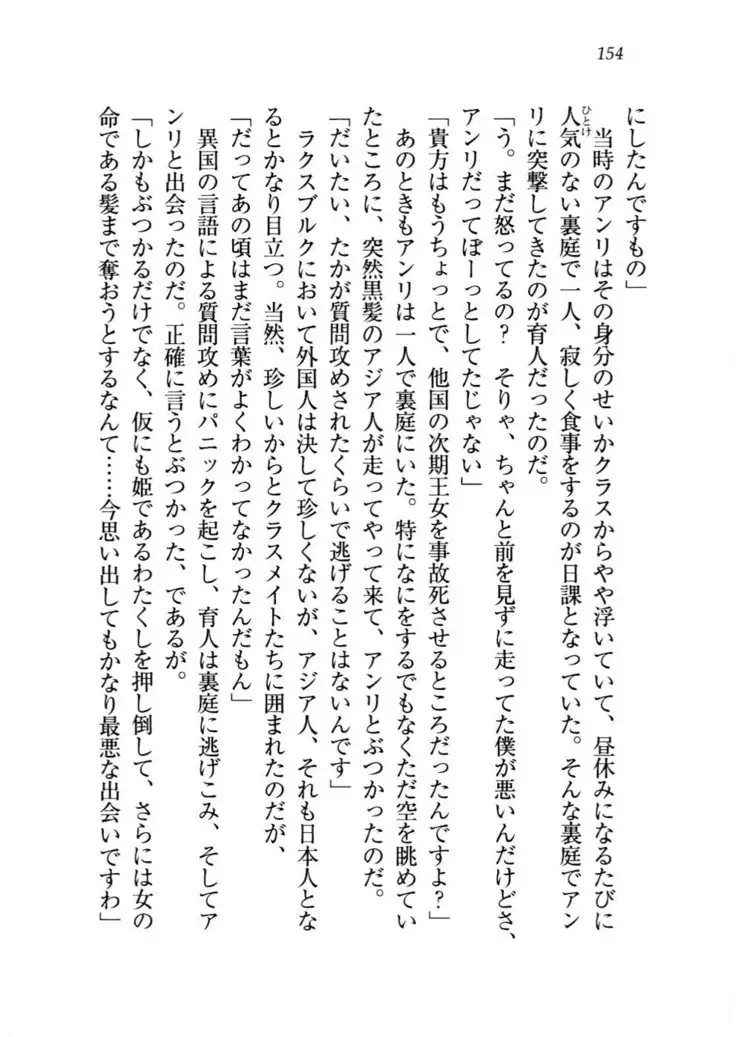 154
にしたんですもの」
　当時のアンリはその身分のせいかクラスからやや浮いていて、昼休みになるたびに
人気のない裏庭で一人、寂しく食事をするのが日課となっていた。そんな裏庭でアン
ひとけ
リに突撃してきたのが育人だったのだ。
「う。まだ怒ってるの？　そりゃ、ちゃんと前を見ずに走ってた僕が悪いんだけどさ、
アンリだってぼーっとしてたじゃない」
「貴方はもうちょっとで、他国の次期王女を事故死させるところだったんですよ？」
　あのときもアンリは一人で裏庭にいた。特になにをするでもなくただ空を眺めてい
たところに、突然黒髪のアジア人が走ってやって来て、アンリとぶつかったのだ。
「だいたい、たかが質問攻めされたくらいで逃げることはないんです」
　ラクスブルクにおいて外国人は決して珍しくないが、アジア人、それも日本人とな
るとかなり目立つ。当然、珍しいからとクラスメイトたちに囲まれたのだが、
「だってあの頃はまだ言葉がよくわかってなかったんだもん」
　異国の言語による質問攻めにパニックを起こし、育人は裏庭に逃げこみ、そしてア
ンリと出会ったのだ。正確に言うとぶつかった、であるが。
「しかもぶつかるだけでなく、仮にも姫であるわたくしを押し倒して、さらには女の
命である髪まで奪おうとするなんて……今思い出してもかなり最悪な出会いですわ」